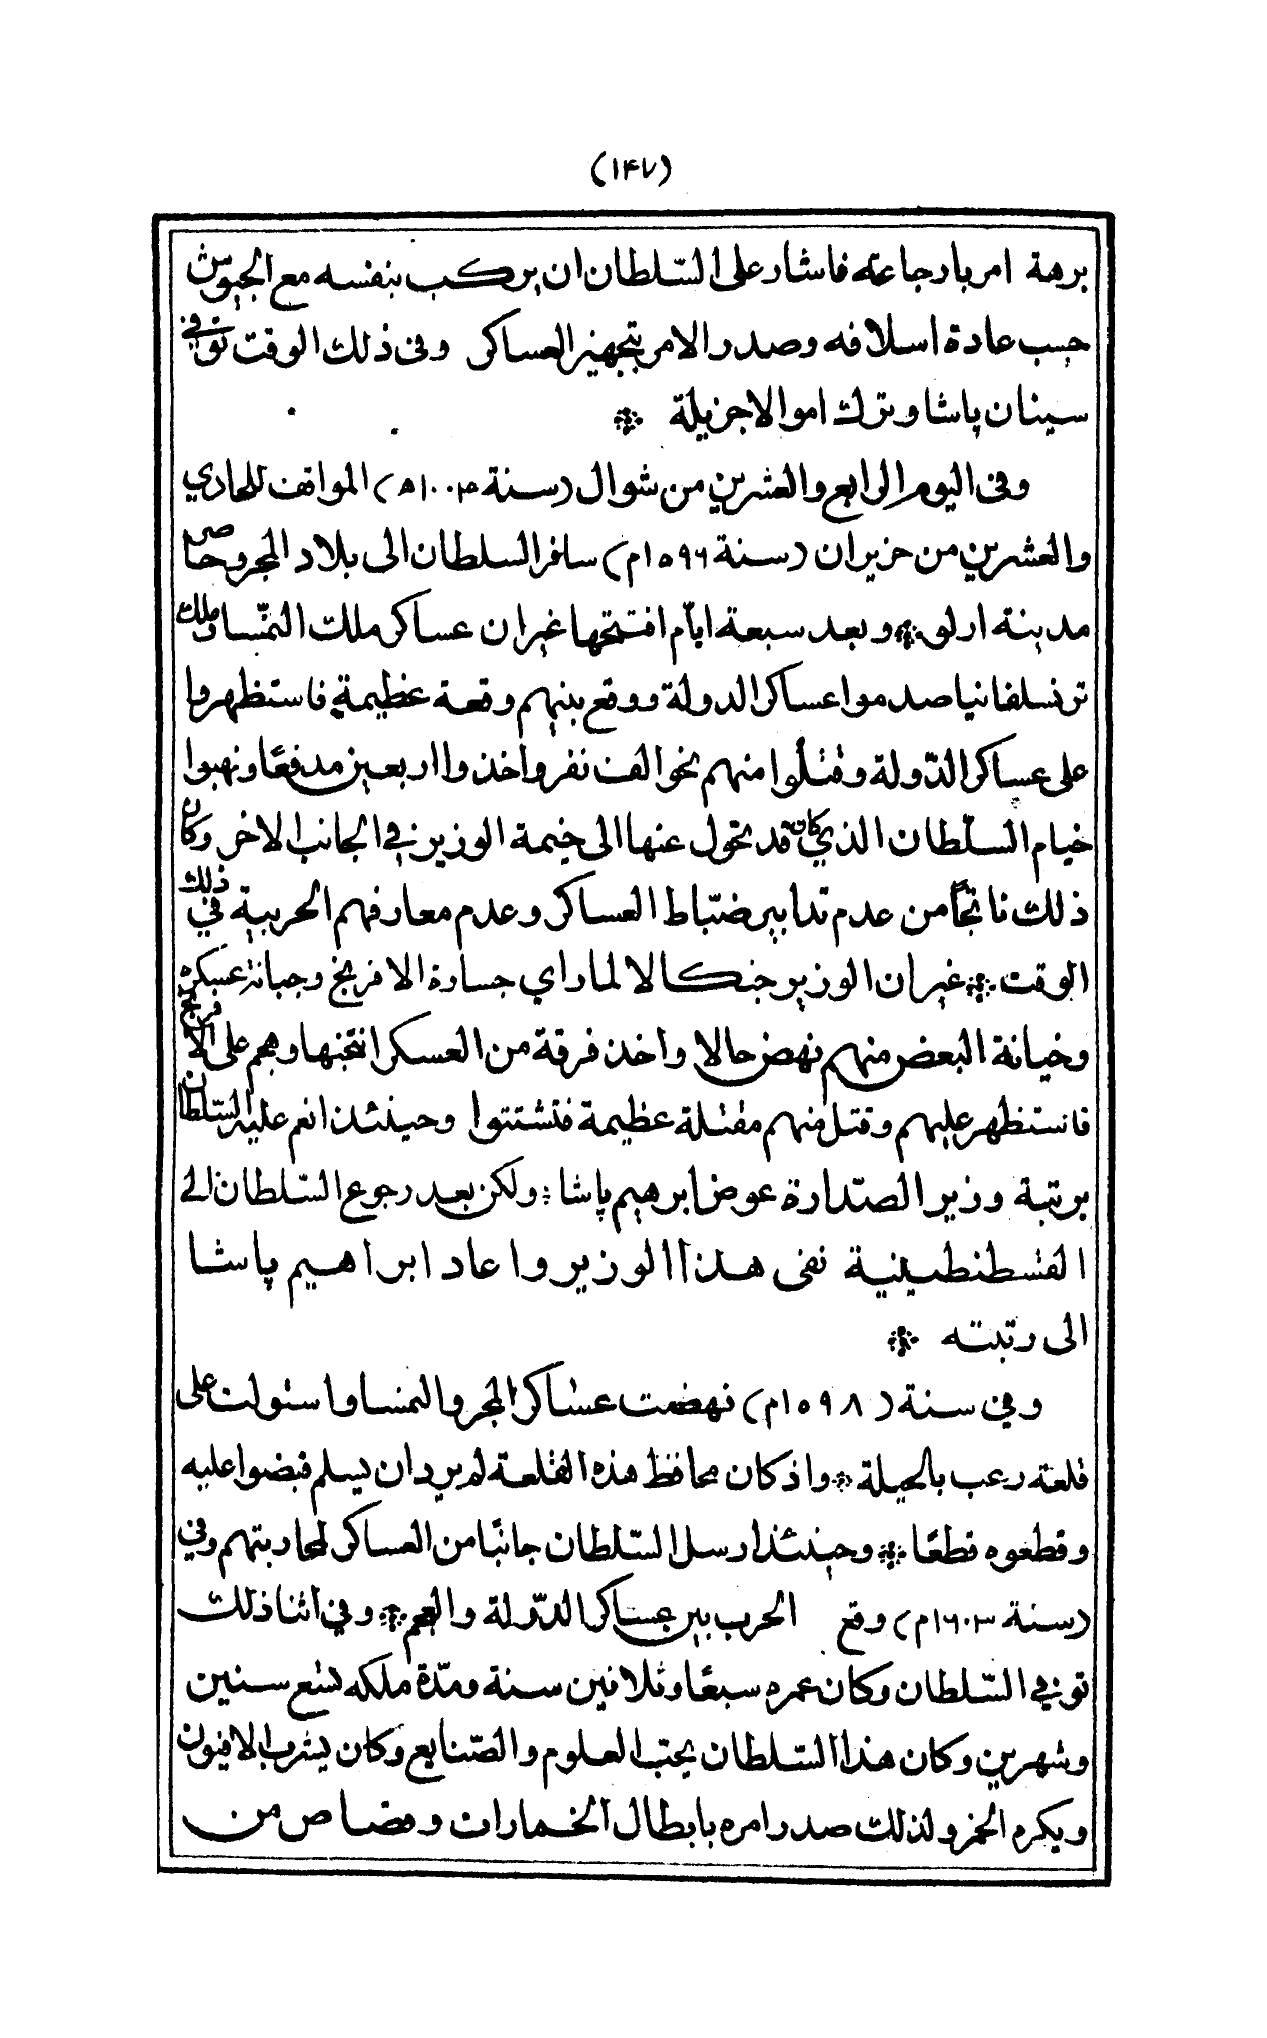 (١٤٧)
برهة امر بارجاعته فاشار على السّلطان ان يركب بنفسه مع الجيوش
حسب عادة اسلافه وصدر الامر بتجهيز العساكر وفى ذلك الوقت توفي
سينان پاشا وترك اموالا جزيلة ※
وفى اليوم الرابع والعشرين من شوال (سنة ١٠٠٤ه) الموافت للحادي
والعشرين من حزيران (سنة ١٥٩٦م) سافر السلطان الى بلاد المجر وحاصر
مدينة ارلو ※ وبعد سبعة ايّام افتتحها غير ان عساكر ملك النمّسا وملك
ترنسلفانيا صدموا عساكر الدولة ووقع بينهم وقعة عظيمة فاستظهروا
على عساكر الدّولة وقتلُوا منهم نحو الف نفر واخذوا اربعين مدفعًا ونهبوا
خيام السلّطان الذي كان قد تحول عنها الى خيمة الوزير في الجانب الاخر وكان
ذلك ناتجًا من عدم تدابير ضبّاط العساكر وعدم معارفهم الحربية في ذلك
الوقت ※ غير ان الوزير جنكالا لما راي جسارة الافرنج وجبانة عسكره
وخيانة البعض منهم نهض حالا واخذ فرقة من العسكر انتخبها وهجم على الافرنج
فاستظهر عليهم وقتل منهم مقتلة عظيمة فتشتتوا وحينئذ انعم عليه السّلطان
برتبة وزير الصّدارة عوض ابرهيم پاشا ※ ولكن بعد رجوع السّلطان الى
القسطنطينية نفى هذا الوزير واعاد ابراهيم پاشا
الى رتبته ※
وفي سنة (١٥٩٨م) نهضت عساكر المجر والنمسا واستولت على
قلعة رعب بالحيلة ※ واذ كان محافظ هذه القلعة لم يرد ان يسلم قبضوا عليه
وقطعوه قطعًا ※ وحينئذ ارسل السّلطان جانبًا من العساكر لمحاربتهم وفي
(سنة ١٦٠٣م) وقع الحرب بين عساكر الدّولة والعجم ※ وفي اثنا ذلك
توفي السّلطان وكان عمره سبعًا وثلاثين سنة ومدّة ملكه تسع سنين
وشهرين وكان هذا السّلطان يحب العلوم والصّنايع وكان يشرب الافيون
ويكره الخمر ولذلك صدر امره بابطال الخمارات وقصاص من